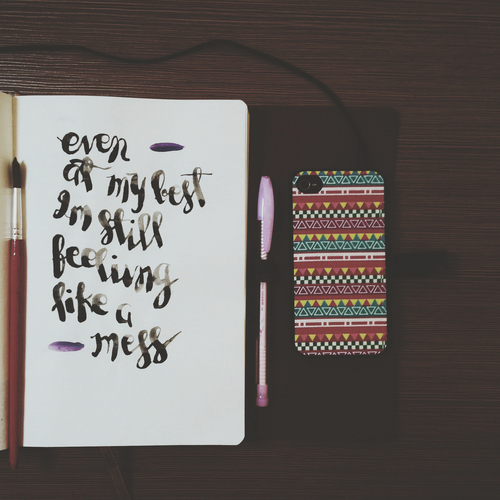 even
at my best
I'm still
feeling
like a
mess